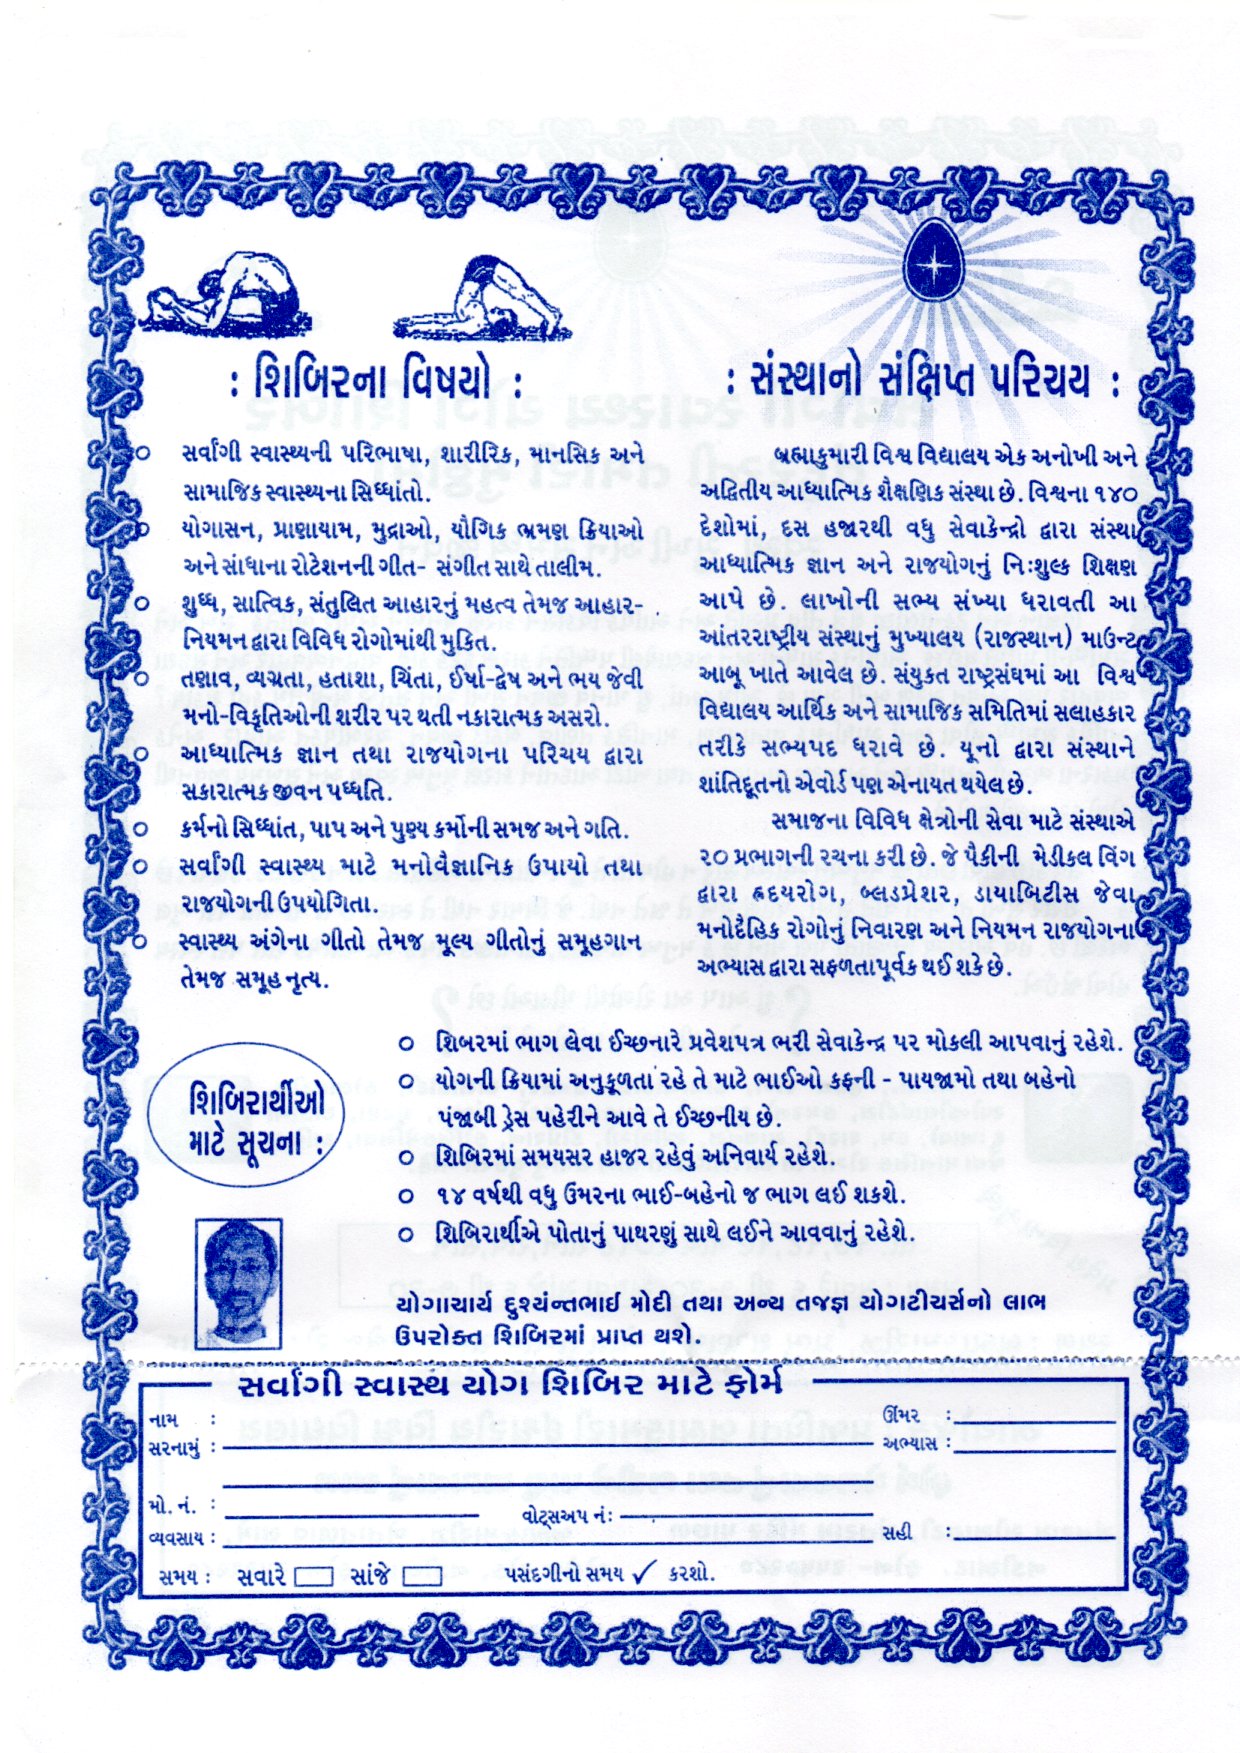 : શિબિરના વિષયો :
સર્વાંગી સ્વાસ્થ્યની પરિભાષા, શારીરિક, માનસિક અને
સામાજિક સ્વાસ્થ્યના સિધ્ધાંતો.
યોગાસન, પ્રાણાયામ, મુદ્રાઓ, યૌગિક ભ્રમણ ક્રિયાઓ
અને સાંધાના રોટેશનની ગીત- સંગીત સાથે તાલીમ.
શુધ્ધ, સાત્વિક, સંતુલિત આહારનું મહત્વ તેમજ આહાર-
નિયમન દ્વારા વિવિધ રોગોમાંથી મુકિત.
તણાવ, વ્યગ્રતા, હતાશા, ચિંતા, ઈર્ષા-દ્વેષ અને ભય જેવી
મનો-વિકૃતિઓની શરીર પર થતી નકારાત્મક અસરો.
આધ્યાત્મિક જ્ઞાન તથા રાજયોગના પરિચય દ્વારા
સકારાત્મક જીવન પધ્ધતિ.
કર્મનો સિધ્ધાંત, પાપ અને પુણ્ય કર્મોની સમજ અને ગતિ.
સર્વાંગી સ્વાસ્થ્ય માટે મનોવૈજ્ઞાનિક ઉપાયો તથા
રાજયોગની ઉપયોગિતા.
સ્વાસ્થ્ય અંગેના ગીતો તેમજ મૂલ્ય ગીતોનું સમૂહગાન
તેમજ સમૂહ નૃત્ય.
: સંસ્થાનો સંક્ષિપ્ત પરિચય :
બ્રહ્માકુમારી વિશ્વ વિદ્યાલય એક અનોખી અને
અદ્વિતીય આધ્યાત્મિક શૈક્ષણિક સંસ્થા છે. વિશ્વના ૧૪૦
દેશોમાં, દસ હજારથી વધુ સેવાકેન્દ્રો દ્વારા સંસ્થા
આધ્યાત્મિક જ્ઞાન અને રાજયોગનું નિઃશુલ્ક શિક્ષણ
આપે છે. લાખોની સભ્ય સંખ્યા ધરાવતી આ
આંતરરાષ્ટ્રીય સંસ્થાનું મુખ્યાલય (રાજસ્થાન) માઉન્ટ
આબૂ ખાતે આવેલ છે. સંયુકત રાષ્ટ્રસંઘમાં આ વિશ્વ
વિદ્યાલય આર્થિક અને સામાજિક સમિતિમાં સલાહકાર
તરીકે સભ્યપદ ધરાવે છે. યૂનો દ્વારા સંસ્થાને
શાંતિદૂતનો એવોર્ડ પણ એનાયત થયેલ છે.
સમાજના વિવિધ ક્ષેત્રોની સેવા માટે સંસ્થાએ
૨૦ પ્રભાગની રચના કરી છે. જે પૈકીની મેડીકલ વિંગ
દ્વારા હૃદયરોગ, બ્લડપ્રેશર, ડાયાબિટીસ જેવા
મનોદૈહિક રોગોનું નિવારણ અને નિયમન રાજયોગના
અભ્યાસ દ્વારા સફળતાપૂર્વક થઈ શકે છે.
શિબિરાર્થીઓ
માટે સૂચના :
શિબરમાં ભાગ લેવા ઈચ્છનારે પ્રવેશપત્ર ભરી સેવાકેન્દ્ર પર મોકલી આપવાનું રહેશે.
યોગની ક્રિયામાં અનુકૂળતા રહે તે માટે ભાઈઓ કફની - પાયજામો તથા બહેનો
પંજાબી ડ્રેસ પહેરીને આવે તે ઈચ્છનીય છે.
શિબિરમાં સમયસર હાજર રહેવું અનિવાર્ય રહેશે.
૧૪ વર્ષથી વધુ ઉંમરના ભાઈ-બહેનો જ ભાગ લઈ શકશે.
શિબિરાર્થીએ પોતાનું પાથરણું સાથે લઈને આવવાનું રહેશે.
યોગાચાર્ય દુશ્યંન્તભાઈ મોદી તથા અન્ય તજજ્ઞ યોગટીચર્સનો લાભ
ઉપરોક્ત શિબિરમાં પ્રાપ્ત થશે.
સર્વાંગી સ્વાસ્થ યોગ શિબિર માટે ફોર્મ
નામ : ઊંમર :
સરનામું : અભ્યાસ :
મો. નં. : વોટ્સઅપ નં :
વ્યવસાય : સહી :
સમય : સવારે સાંજે પસંદગીનો સમય ✓ કરશો.